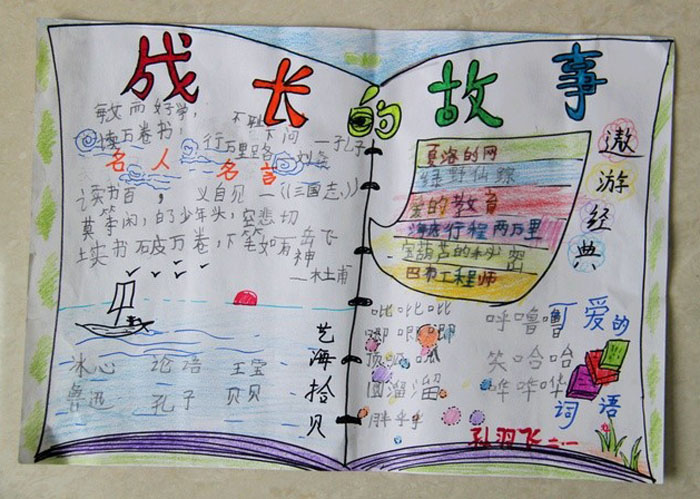 成长的故事
敏而好学，不耻下问 — 孔子
读万卷书，行万里路 刘彝
名人名言
读书百 ，义自见 —《三国志》
莫等闲，白了少年头，空悲切
— 岳飞
读书破万卷，下笔如有神
— 杜甫
冰心 论语 王宝
鲁迅 孔子 贝贝
艺海拾贝
夏洛的网
绿野仙踪
爱的教育
海底行程两万里
宝葫芦的秘密
巴布工程师
遨游经典
吡吡吡 呼噜噜
唧唧唧 笑哈哈
顶呱呱 哗哗哗
圆溜溜
胖乎乎
可爱的词语
孔羽飞 二.一